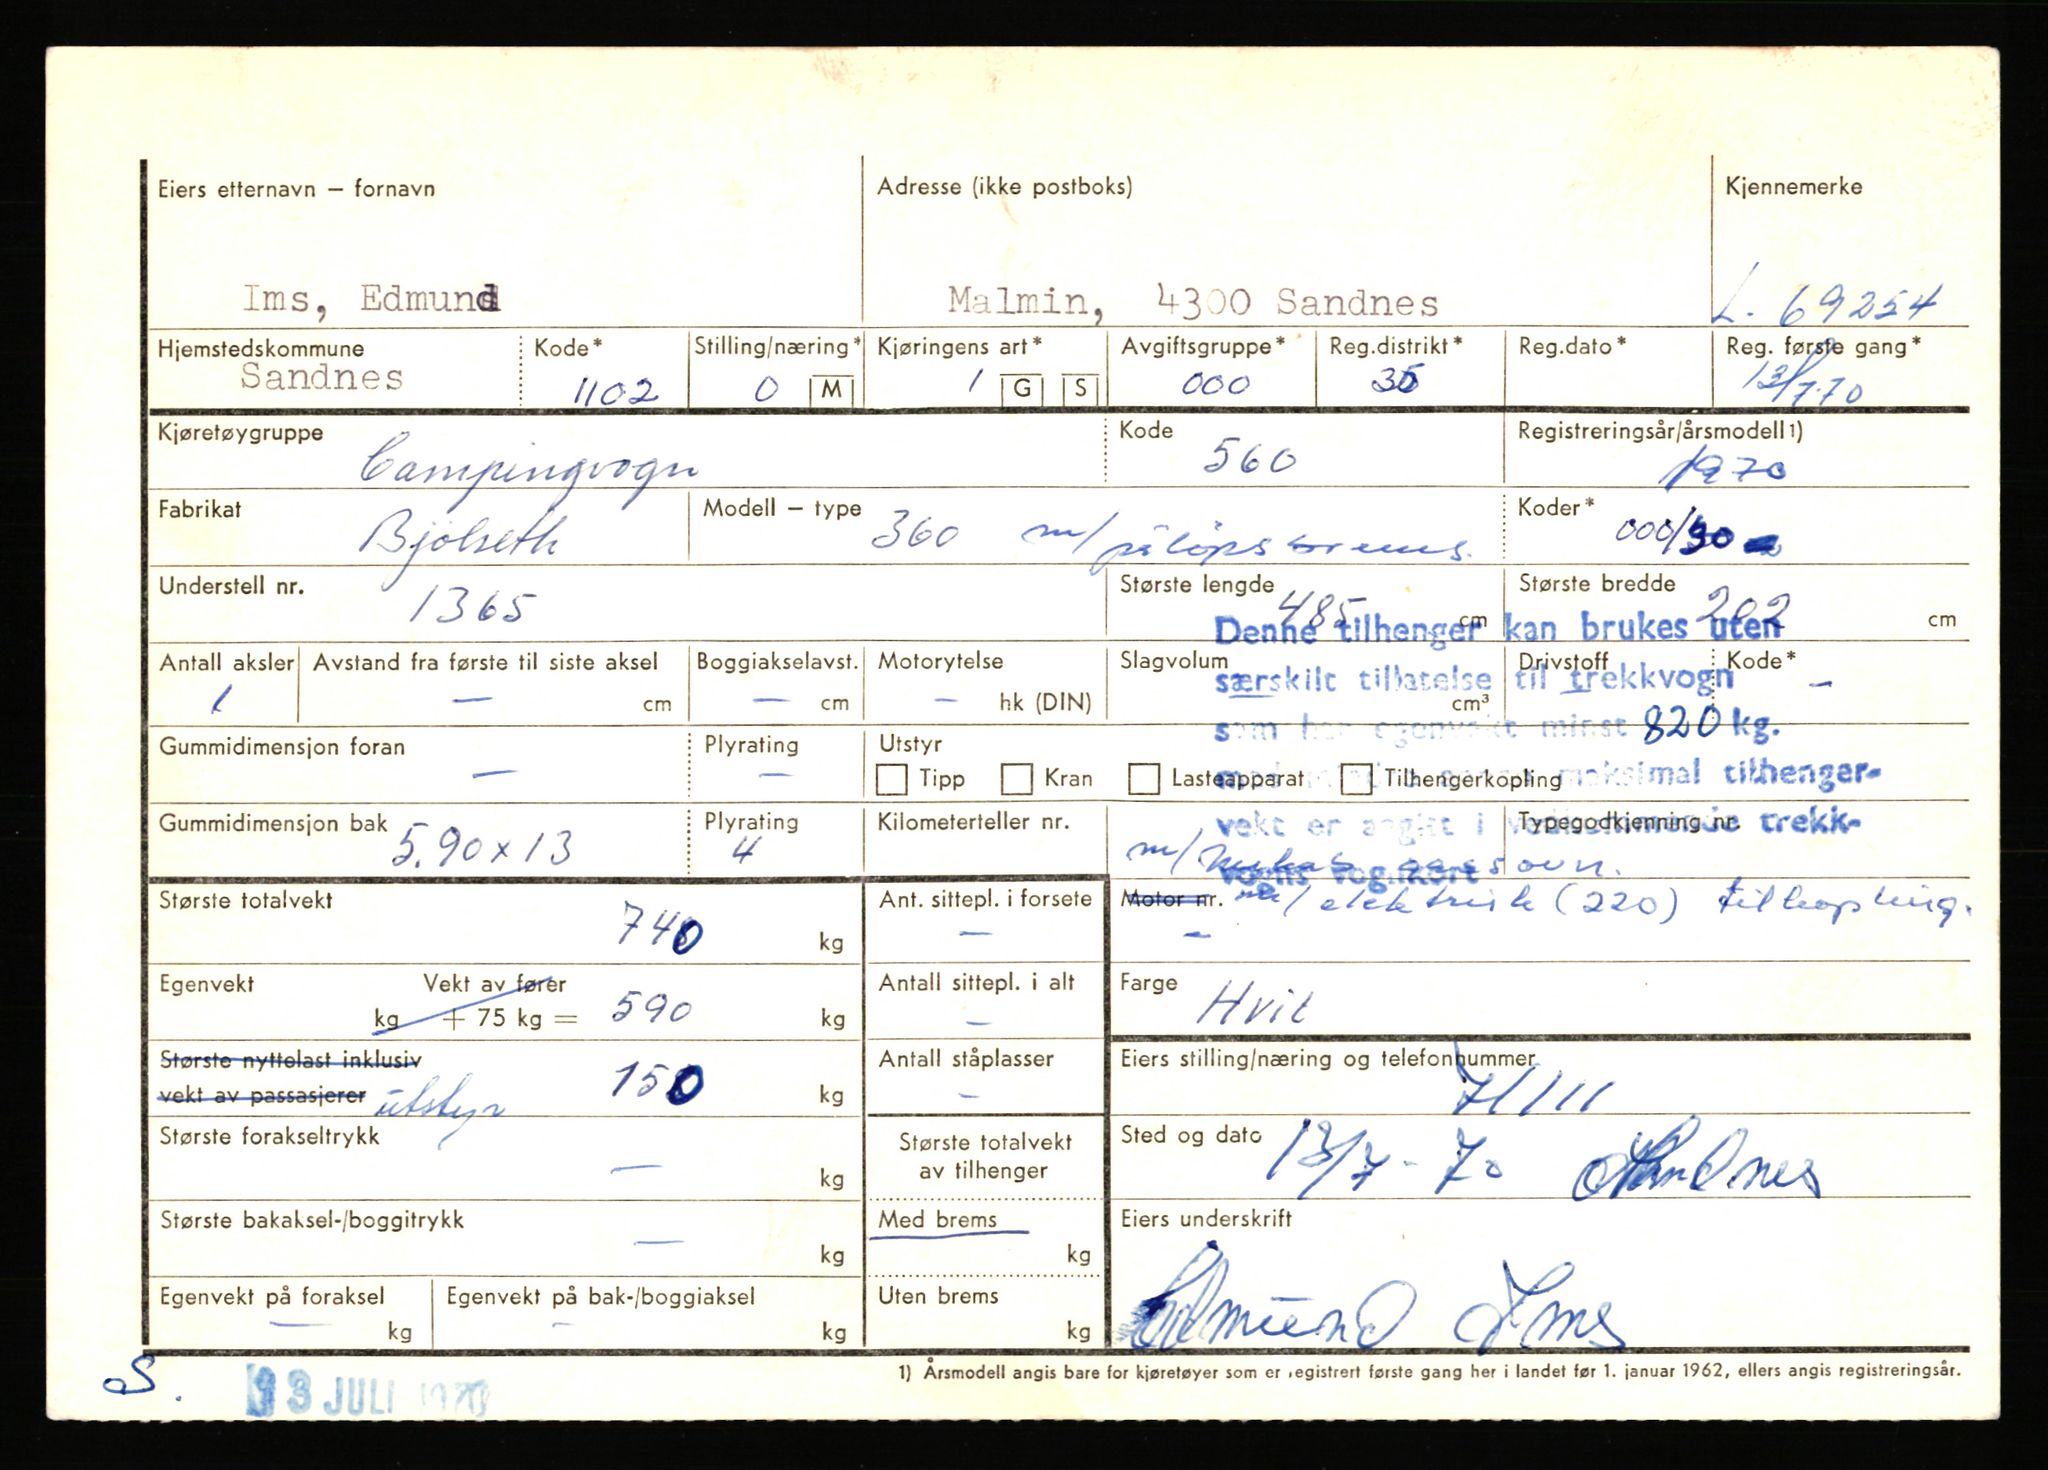 Eiers etternavn – fornavn Adresse (ikke postboks) Kjennemerke
Ims, Edmund Malmin, 4300 Sandnes L. 69254
Hjemstedskommune Kode* Stilling/næring* Kjøringens art* Avgiftsgruppe* Reg.distrikt* Reg.dato* Reg. første gang*
Sandnes 1102 0 M 1 G S 000 35 13/7.70
Kjøretøygruppe Kode Registreringsår/årsmodell 1)
Campingvogn 560 1970
Fabrikat Modell – type Koder*
Bjölseth 360 m/ påløpsbrems. 000/30
Understell nr. Største lengde Største bredde
1365 485 cm 202 cm
Denne tilhenger kan brukes uten
Antall aksler Avstand fra første til siste aksel Boggiakselavst. Motorytelse Slagvolum Drivstoff Kode*
særskilt tillatelse til trekkvogn
1 – cm – cm – hk (DIN) cm³ –
som har egenvekt minst 820 kg.
Gummidimensjon foran Plyrating Utstyr
– – Tipp Kran Lasteapparat Tilhengerkopling
maksimal tilhenger-
Gummidimensjon bak Plyrating Kilometerteller nr. Typegodkjenning nr.
vekt er angitt i vedkommende trekk-
5.90 x 13 4 m/ ovn.
vogns vognkort
Største totalvekt Ant. sittepl. i forsete Motor nr. m/ elektrisk (220) tilkopling.
740 kg – –
Egenvekt Vekt av fører Antall sittepl. i alt Farge
kg + 75 kg = 590 kg – Hvit
Største nyttelast inklusiv Antall ståplasser Eiers stilling/næring og telefonnummer
vekt av passasjerer utstyr 150 kg – 71111
Største forakseltrykk Største totalvekt Sted og dato
– kg av tilhenger 13/7-70 Sandnes
Største bakaksel-/boggitrykk Med brems Eiers underskrift
– kg kg
Egenvekt på foraksel Egenvekt på bak-/boggiaksel Uten brems Edmund Ims
– kg – kg kg
1) Årsmodell angis bare for kjøretøyer som er registrert første gang her i landet før 1. januar 1962, ellers angis registreringsår.
S. 13 JULI 1970